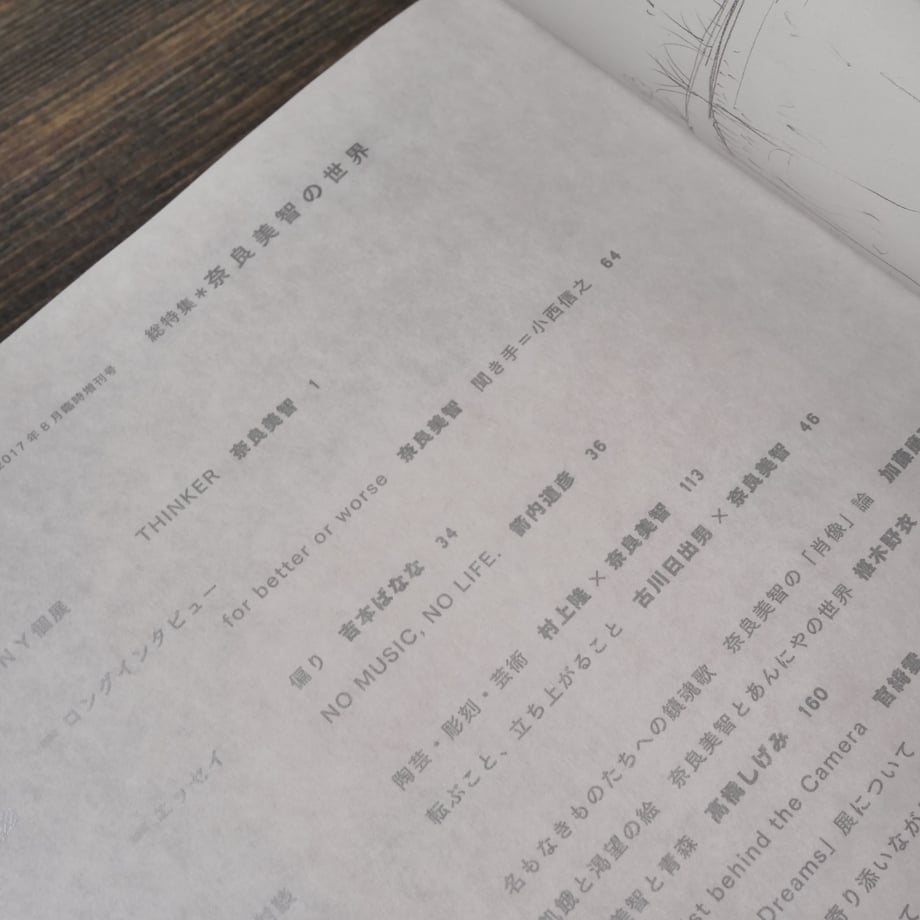 2017年8月臨時増刊号
総特集*奈良美智の世界
NY個展
THINKER 奈良美智 1
ロングインタビュー
for better or worse 奈良美智 聞き手=小西信之 64
エッセイ
偏り 吉本ばなな 34
NO MUSIC, NO LIFE. 箭内道彦 36
陶芸・彫刻・芸術 村上隆×奈良美智 113
転ぶこと、立ち上がること 古川日出男×奈良美智 46
名もなきものたちへの鎮魂歌 奈良美智の「肖像」論 加藤
飢餓と渇望の絵 奈良美智とあんにやの世界 椹木野衣
美智と青森 高橋しげみ 160
st behind the Camera
Dreams」展について
寄り添いなが